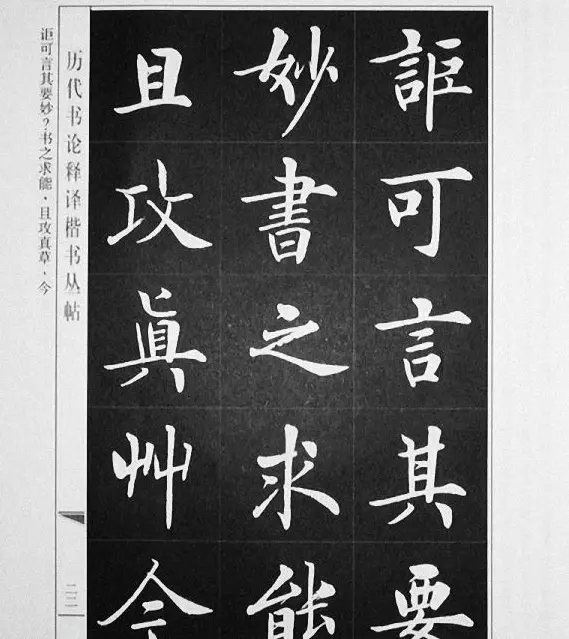 詎可言其要
妙書之求能
且攻眞艸今
历代书论释译楷书丛帖
讵可言其要妙？书之求能，且攻真草，今
二二